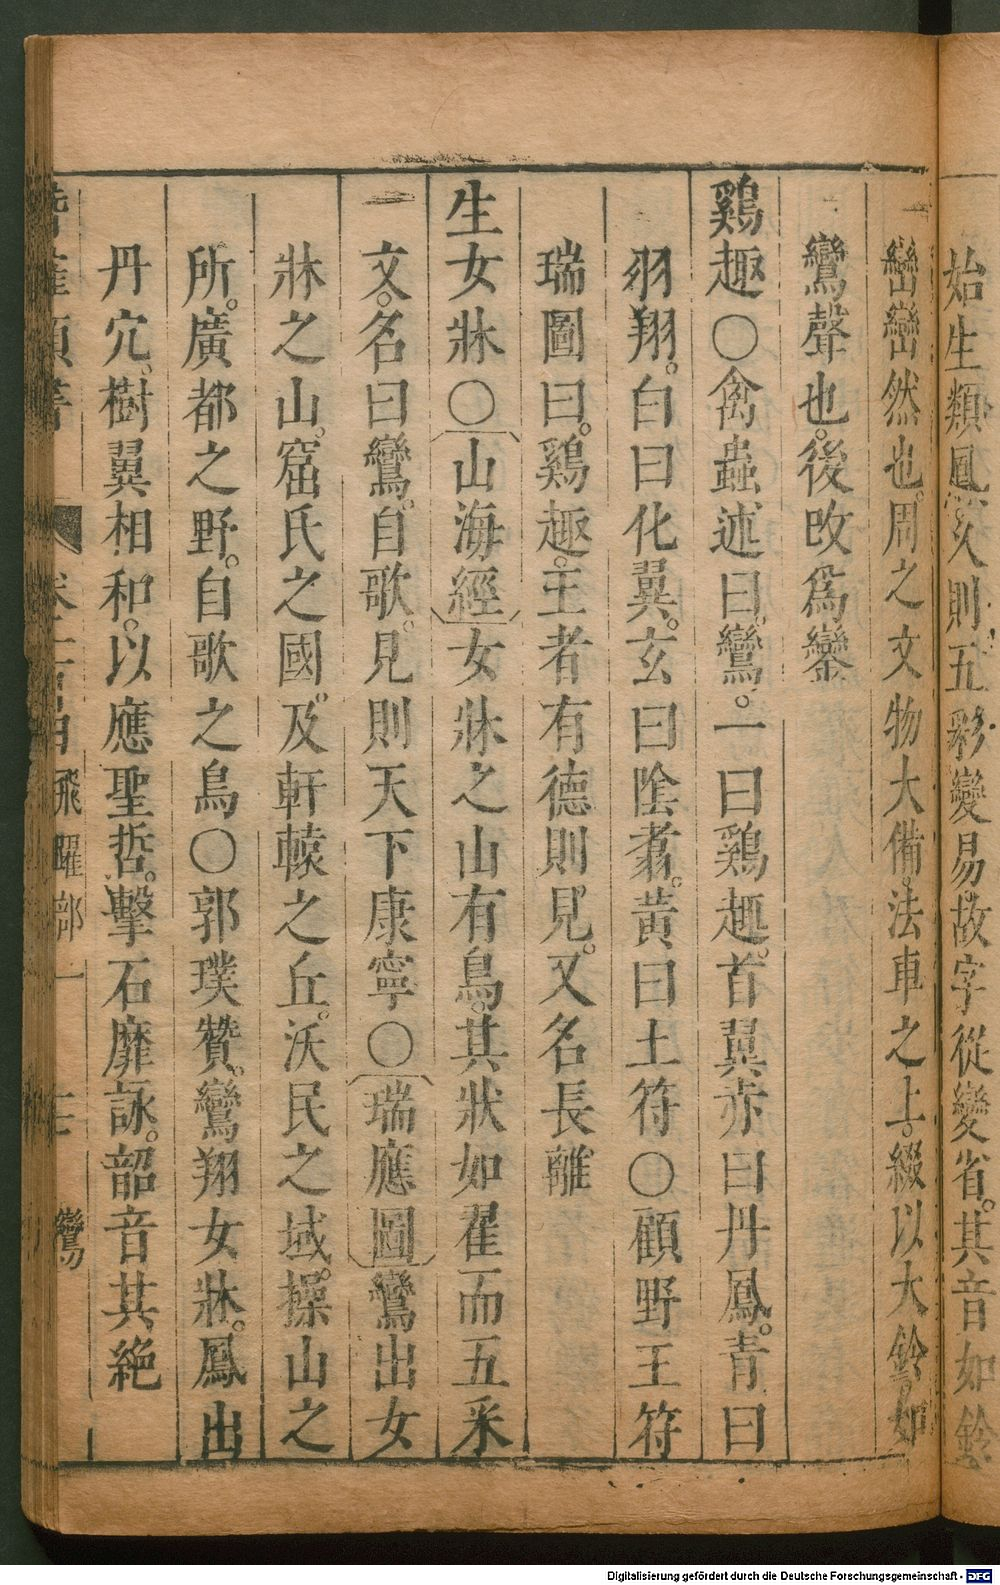 始生類鳳久則五彩變易故字從變省其音如鈴
巒巒然也周之文物大備法車之上綴以大鈴如
鸞聲也後改爲鑾
鷄趣〇禽蟲述曰鸞一曰鷄趣首翼赤曰丹鳳青曰
羽翔白曰化翼玄曰陰翥黃曰土符〇顧野王符
瑞圖曰鷄趣王者有德則見又名長離
生女牀〇山海經女牀之山有鳥其狀如翟而五釆
文名曰鸞自歌見則天下康寧〇瑞應圖鸞出女
牀之山窟氏之國及軒轅之丘沃民之域操山之
所廣都之野自歌之鳥〇郭璞贊鸞翔女牀鳳出
丹穴樹翼相和以應聖哲擊石靡詠韶音其絶
飛躍部一
鸞
Digitalisierung gefördert durch die Deutsche Forschungsgemeinschaft - DFG